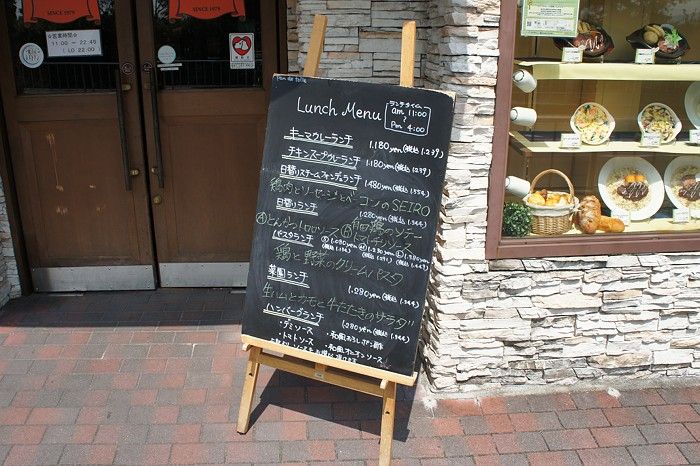 SINCE 1979
SINCE 1979
☆営業時間☆
11:00 ～ 22:45
LO 22:00
Lunch Menu
ランチタイム
am 11:00
～
Pm 4:00
キーマカレーランチ 1.180yen(税込 1.239)
チキンスープカレーランチ 1.180yen(税込 1.239)
日替りスチームフォンデュランチ 1.480yen(税込 1.554)
鶏肉とソーセージとベーコンのSEIRO
日替りランチ 1.280yen(税込 1.344)
パスタランチ
鶏と野菜のクリームパスタ
菜園ランチ 1.280yen(税込 1.344)
生ハムとカモと牛たたきのサラダ
ハンバーグランチ 1.280yen(税込 1.344)
・デミソース ・和風おろしポン酢
・トマトソース ・和風オニオンソース